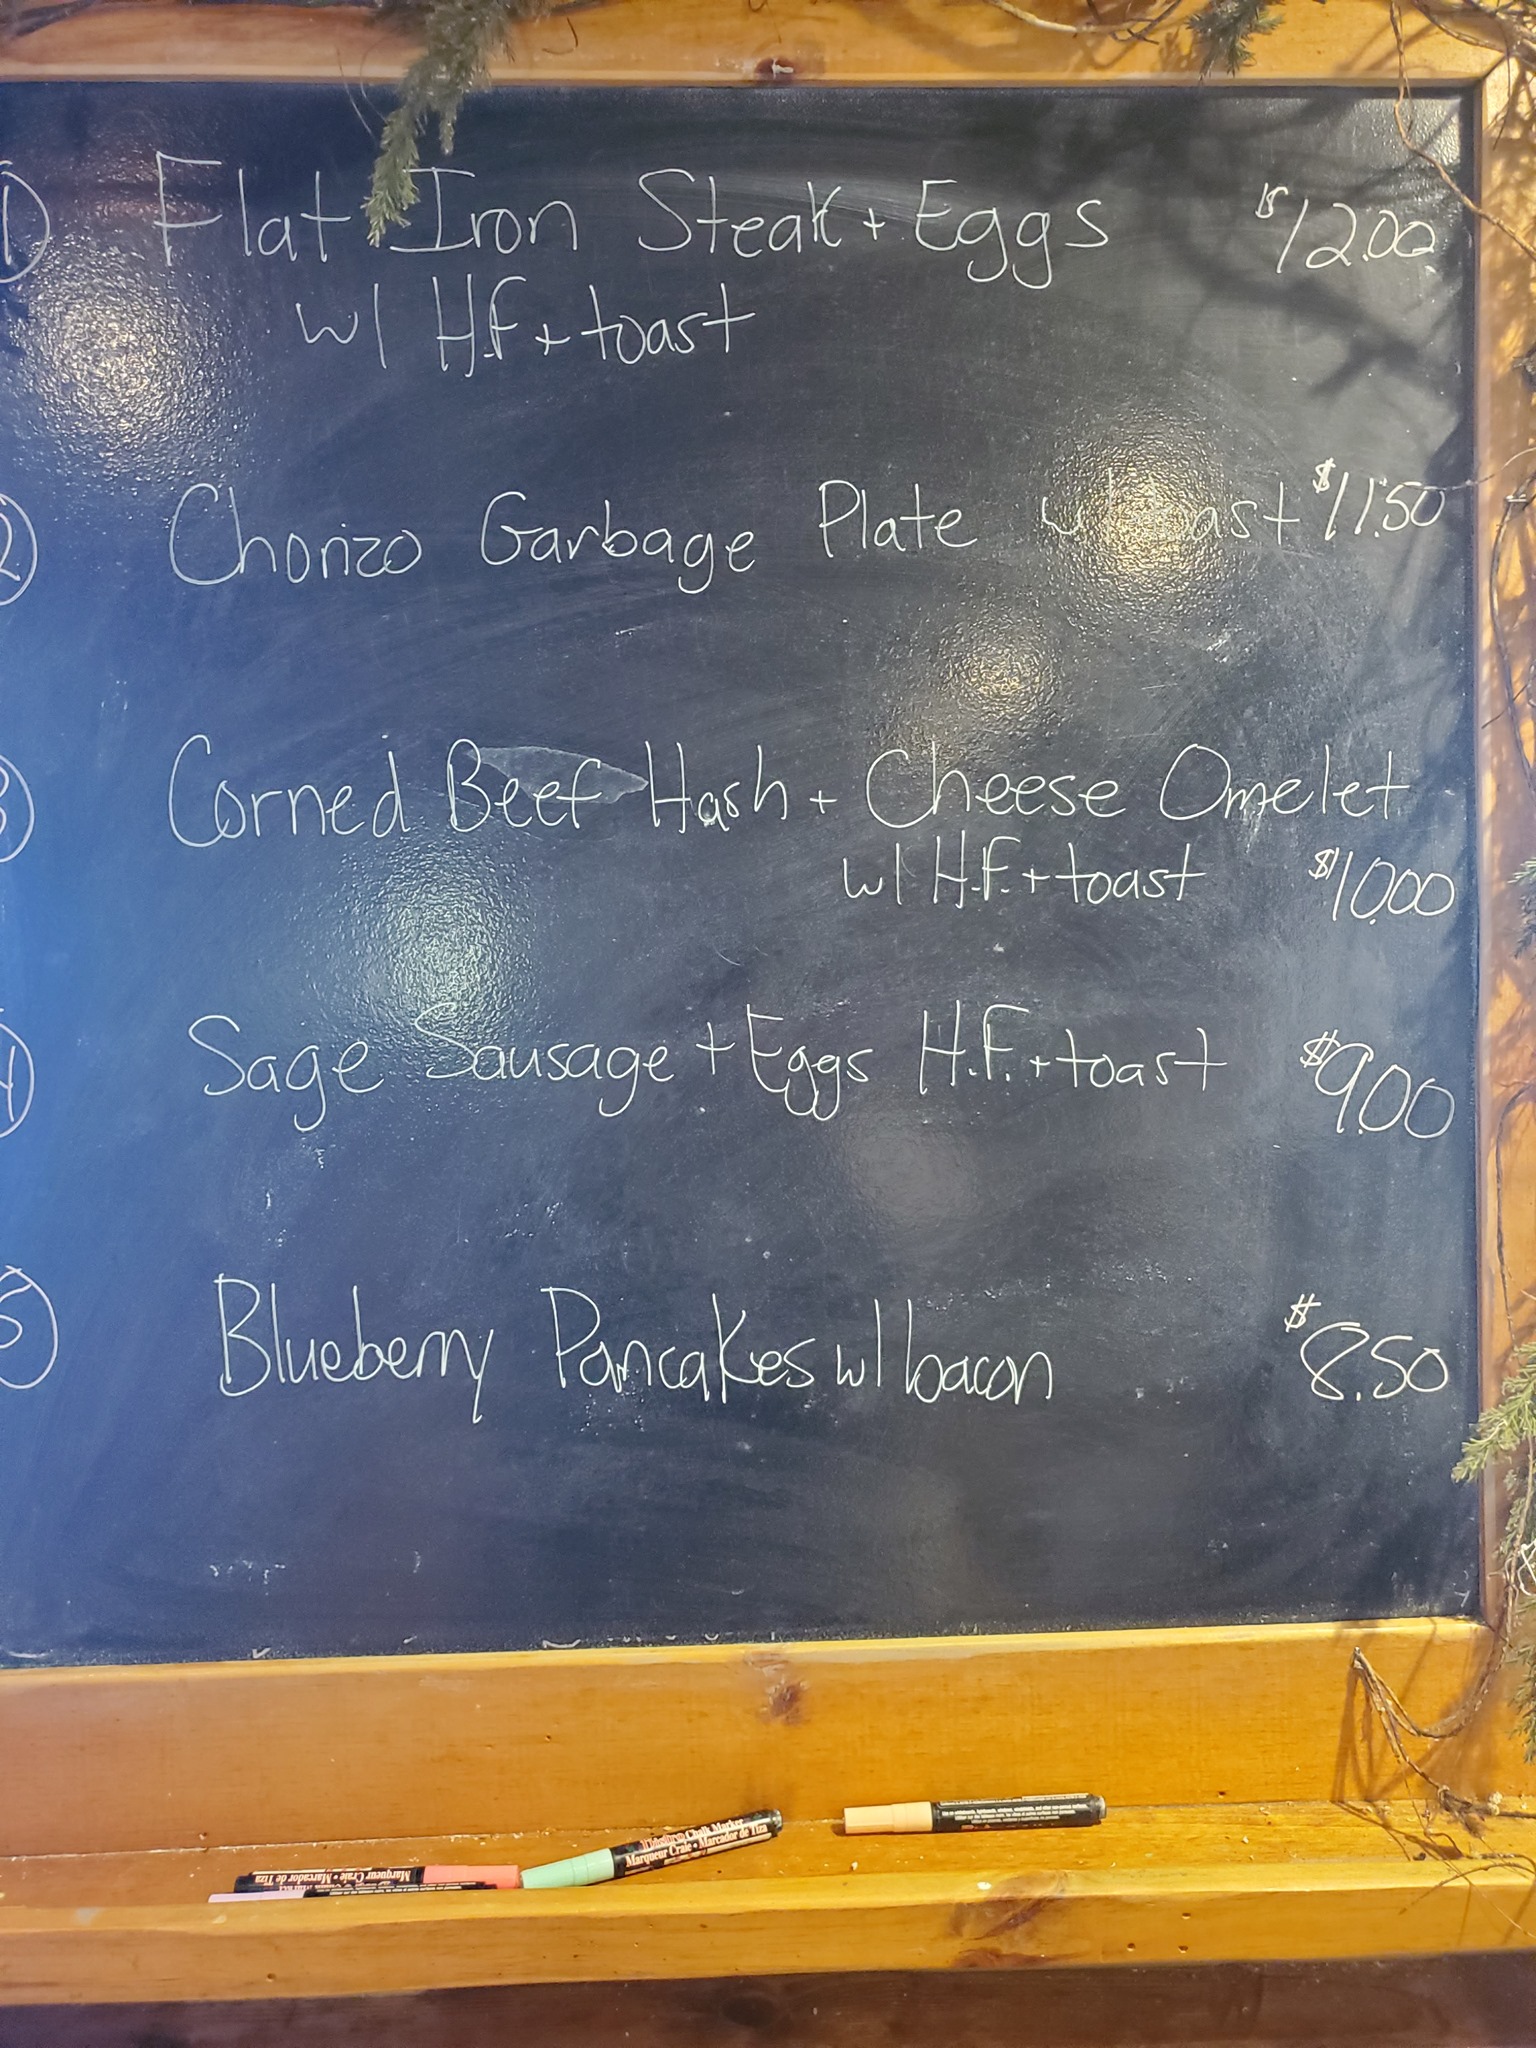 1 Flat Iron Steak + Eggs $12.00
w/ H.F + toast
2 Chorizo Garbage Plate w/ toast $11.50
3 Corned Beef Hash + Cheese Omelet
w/ H.F. + toast $10.00
4 Sage Sausage + Eggs H.F. + toast $9.00
5 Blueberry Pancakes w/ bacon $8.50
Chalk Marker
Marqueur Craie • Marcador de Tiza
Marqueur Craie • Marcador de Tiza